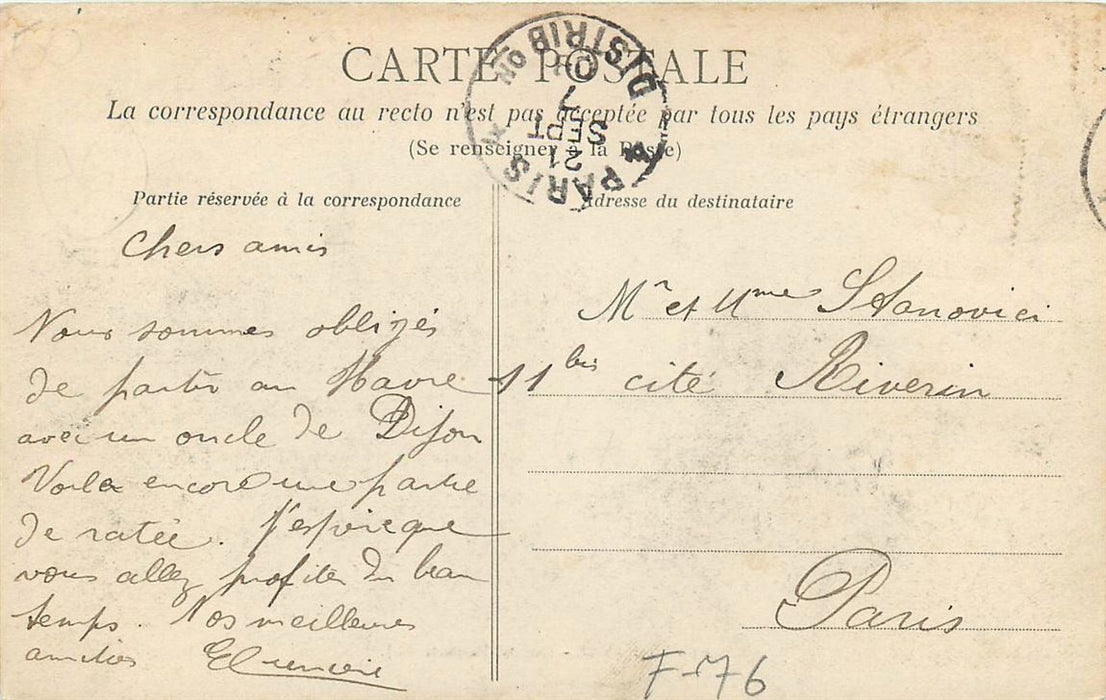 CARTE POSTALE
La correspondance au recto n'est pas acceptée par tous les pays étrangers
(Se renseigner à la Poste)
Partie réservée à la correspondance
Chers amis
Nous sommes obligés
de partir au Havre
avec un oncle de Dijon
Voila encore une partie
de ratée. J'espère que
vous allez profiter du beau
temps. Nos meilleures
amitiés
Adresse du destinataire
Mr et Mme Stanovici
11 bis cité Riverin
Paris
PARIS XI
DISTRIB ON
21
SEPT
F-76